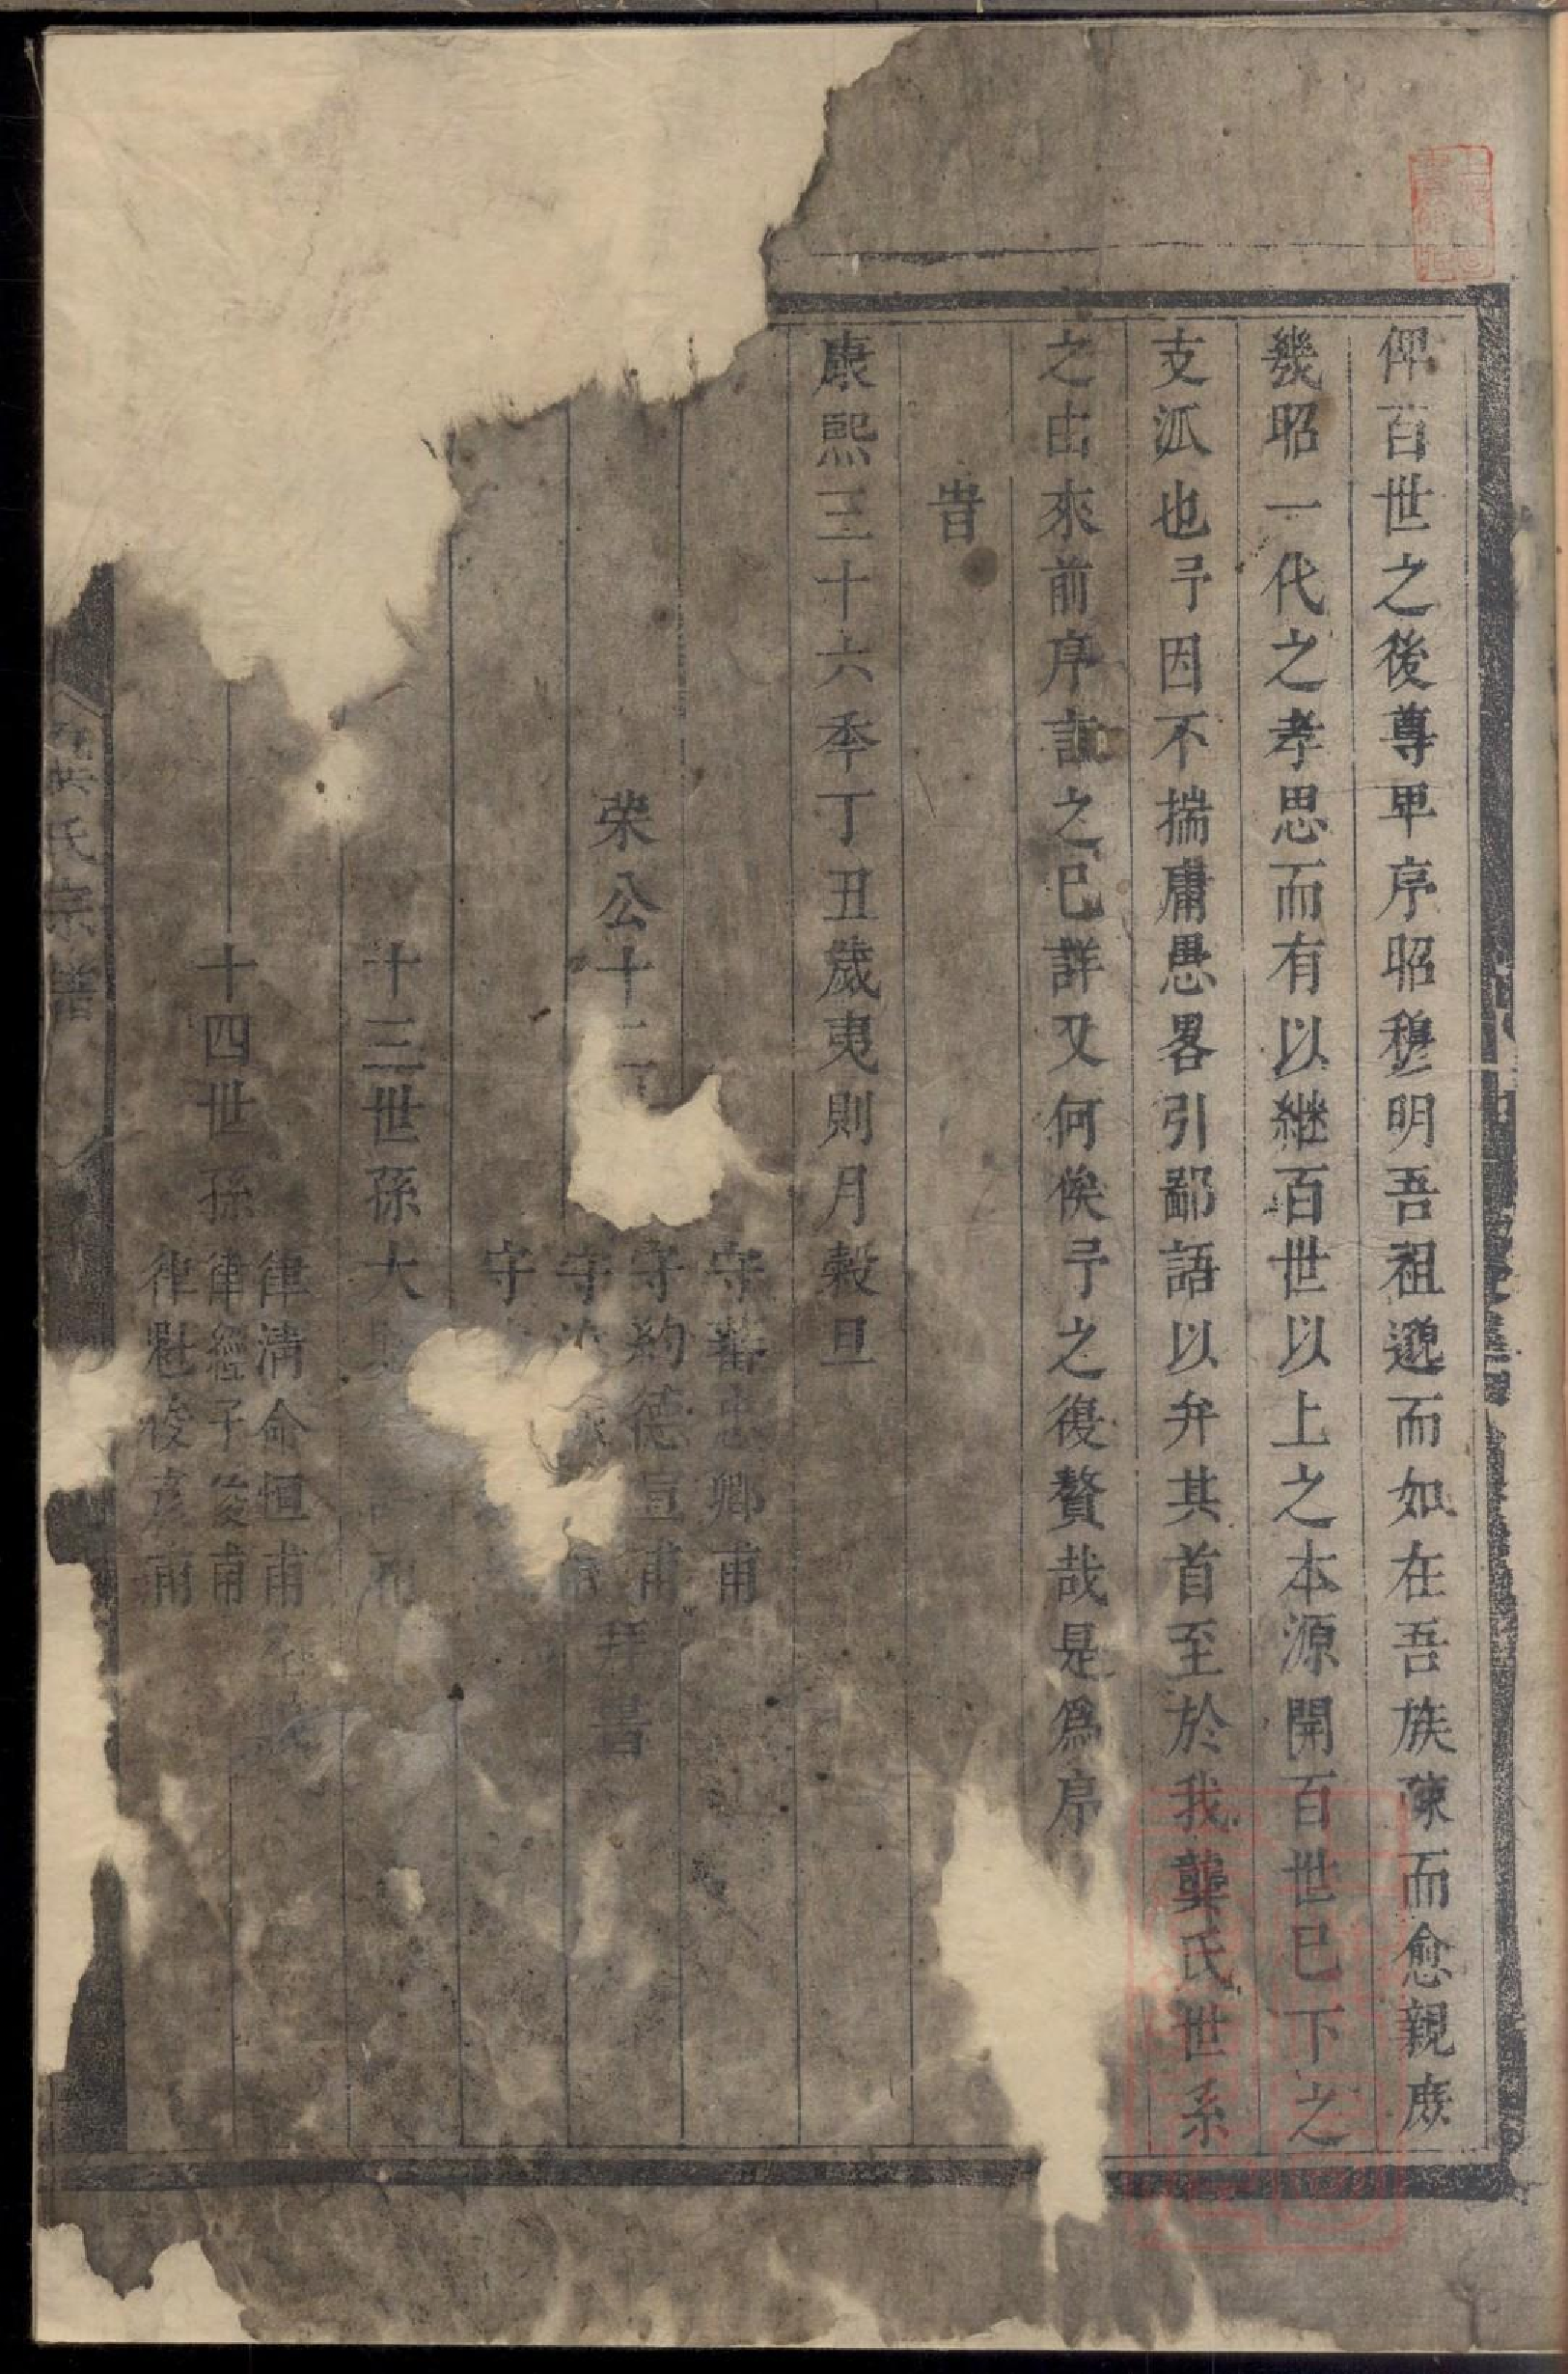 俾百世之後尊卑序昭穆明吾祖邈而如在吾族疎而愈親庶
幾昭一代之孝思而有以継百世以上之本源開百世已下之
支派也予因不揣庸愚畧引鄙語以弁其首至於我龔氏世系
之由來前序誌之已詳又何俟予之復贅哉是爲序
旹
康熙三十六秊丁丑歲夷則月榖旦
守蕃忠卿甫
守約德宣甫
榮公十二
守
守
拜書
十三世孫大
甫
十四世孫
律清命恒甫
律經子俊甫
律魁俊彥甫
龔氏宗譜